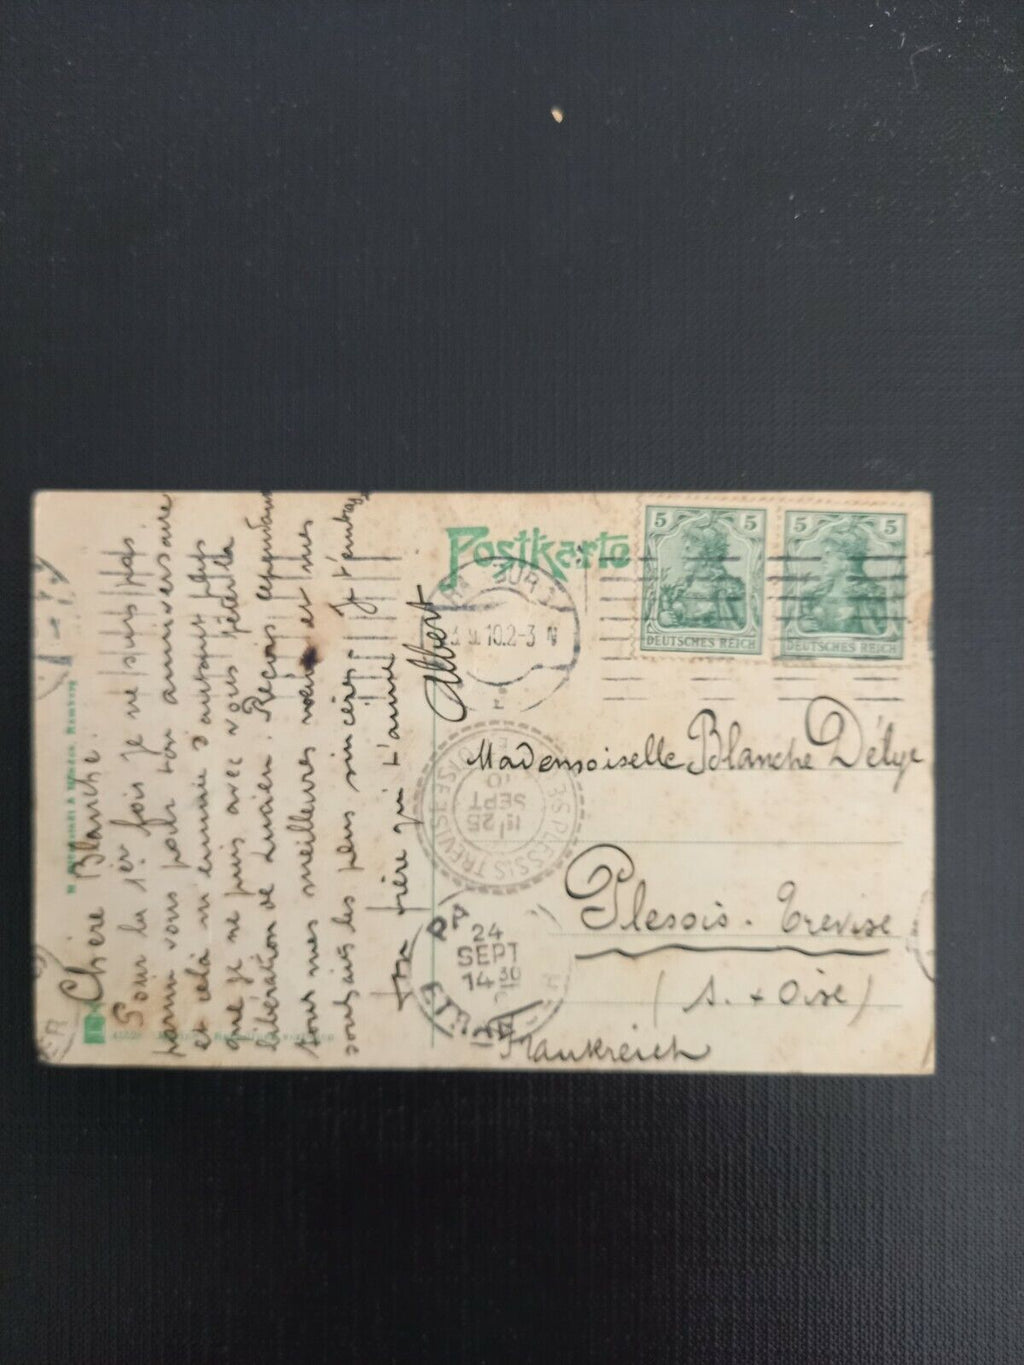 Chère Blanche.
Pour la 1ère fois je ne suis pas
parmi vous pour ton anniversaire
et celà m'ennuie d'autant plus
que je ne puis avec vous fêter la
libération de Lucien. Reçois cependant
tous mes meilleures vœux et mes
souhaits les plus sincères. Je t'embrasse
Ton frère qui t'aime
Albert
Postkarte
5 5
DEUTSCHES REICH
5 5
DEUTSCHES REICH
10.2-3 N
Mademoiselle Blanche Délye
Plessis-Trevise
(S. & Oise)
Frankreich
LE PLESSIS TREVISE
18 25
SEPT
10
24
SEPT
14 30